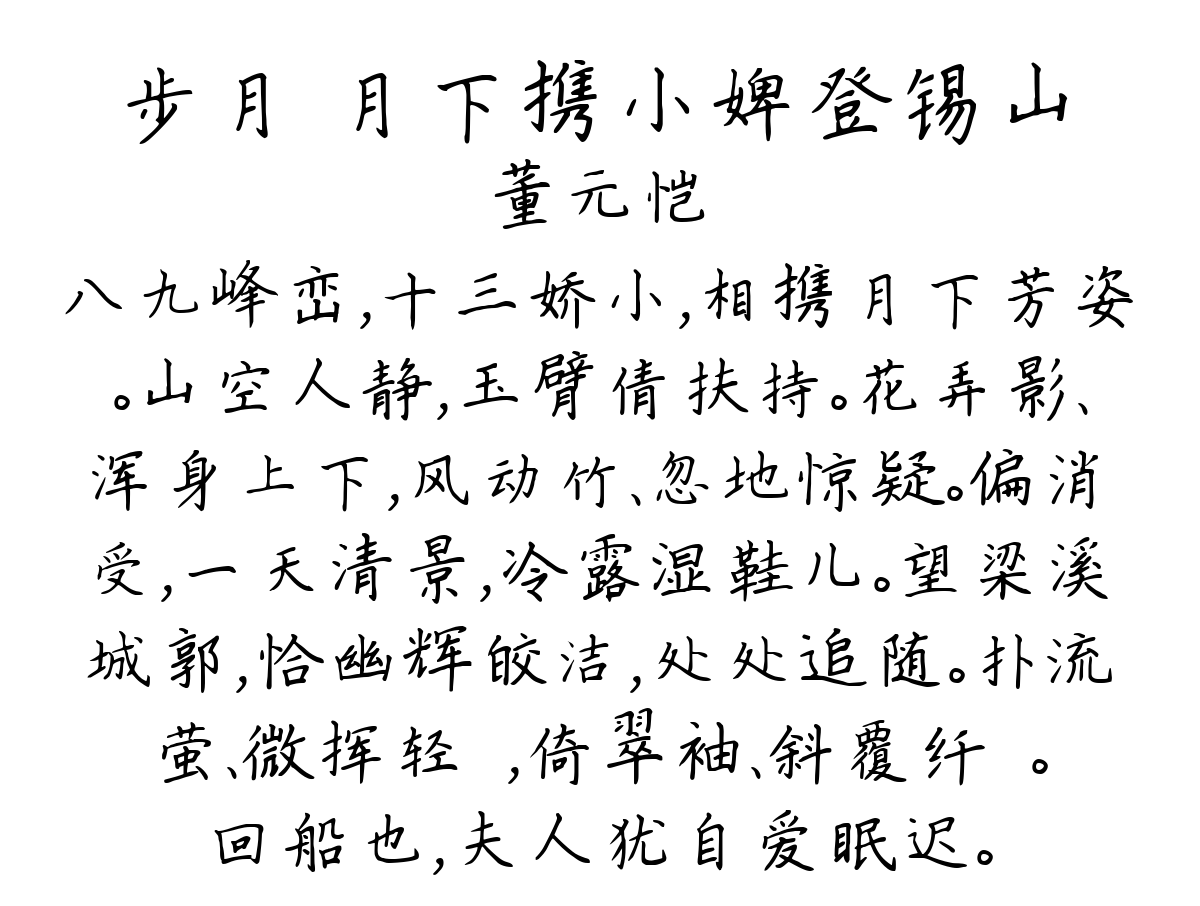 步月 月下携小婢登锡山
董元恺
八九峰峦,十三娇小,相携月下芳姿
。山空人静,玉臂倩扶持。花弄影、
浑身上下,风动竹、忽地惊疑。偏消
受,一天清景,冷露湿鞋儿。望梁溪
城郭,恰幽辉皎洁,处处追随。扑流
萤、微挥轻 ,倚翠袖、斜覆纤 。
回船也,夫人犹自爱眠迟。